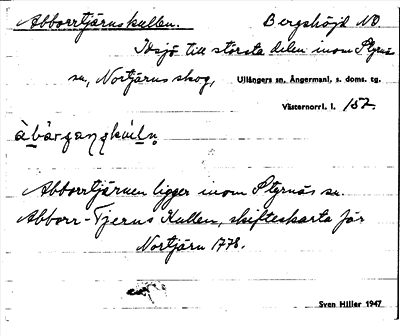 Abborrtjärnskullen. Bergshöjd NO
Idsjö till största delen inom Styrnäs
sn, Nortjärns skog, Ullångers sn, Ångermanl. s. doms. tg.
Västernorrl. l. 152
àbårʒaɳʒkúlṇ
Abborrtjärnen ligger inom Styrnäs sn.
Abborr-Tjerns Kullen, skifteskarta för
Nortjärn 1778.
Sven Hiller 1947